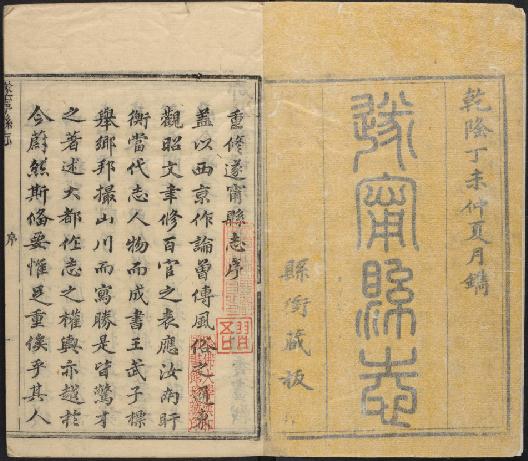 乾隆丁未仲夏月鐫
遂甯縣志
縣衙藏板
重修遂甯縣志序
蓋以西京作論曾傳風俗之通東
觀昭文聿修百官之表應汝南盱
衡當代志人物而成書王武子標
舉鄉邦撮山川而寫勝是皆驚才
之著述大都作志之權輿亦越於
今蔚然斯備要惟是重俟乎其人
序